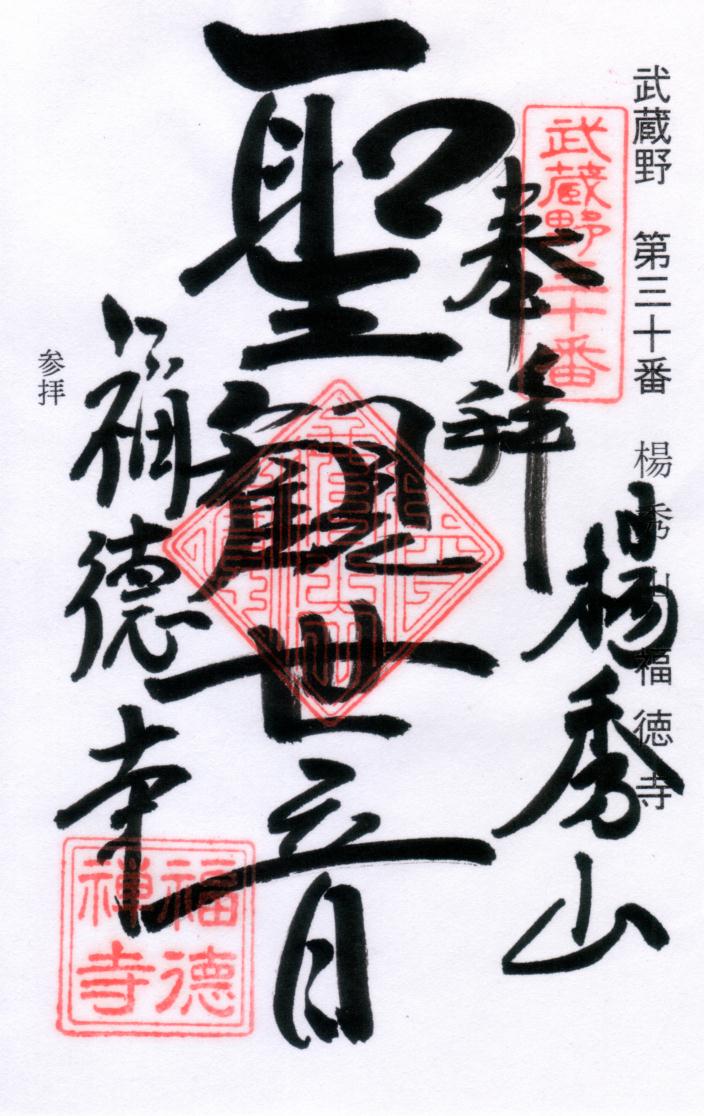 武蔵野 第三十番 楊秀山 福徳寺
武蔵野三十番
奉拝
楊秀山
聖観世音
福徳寺
福徳
禅寺
参拝